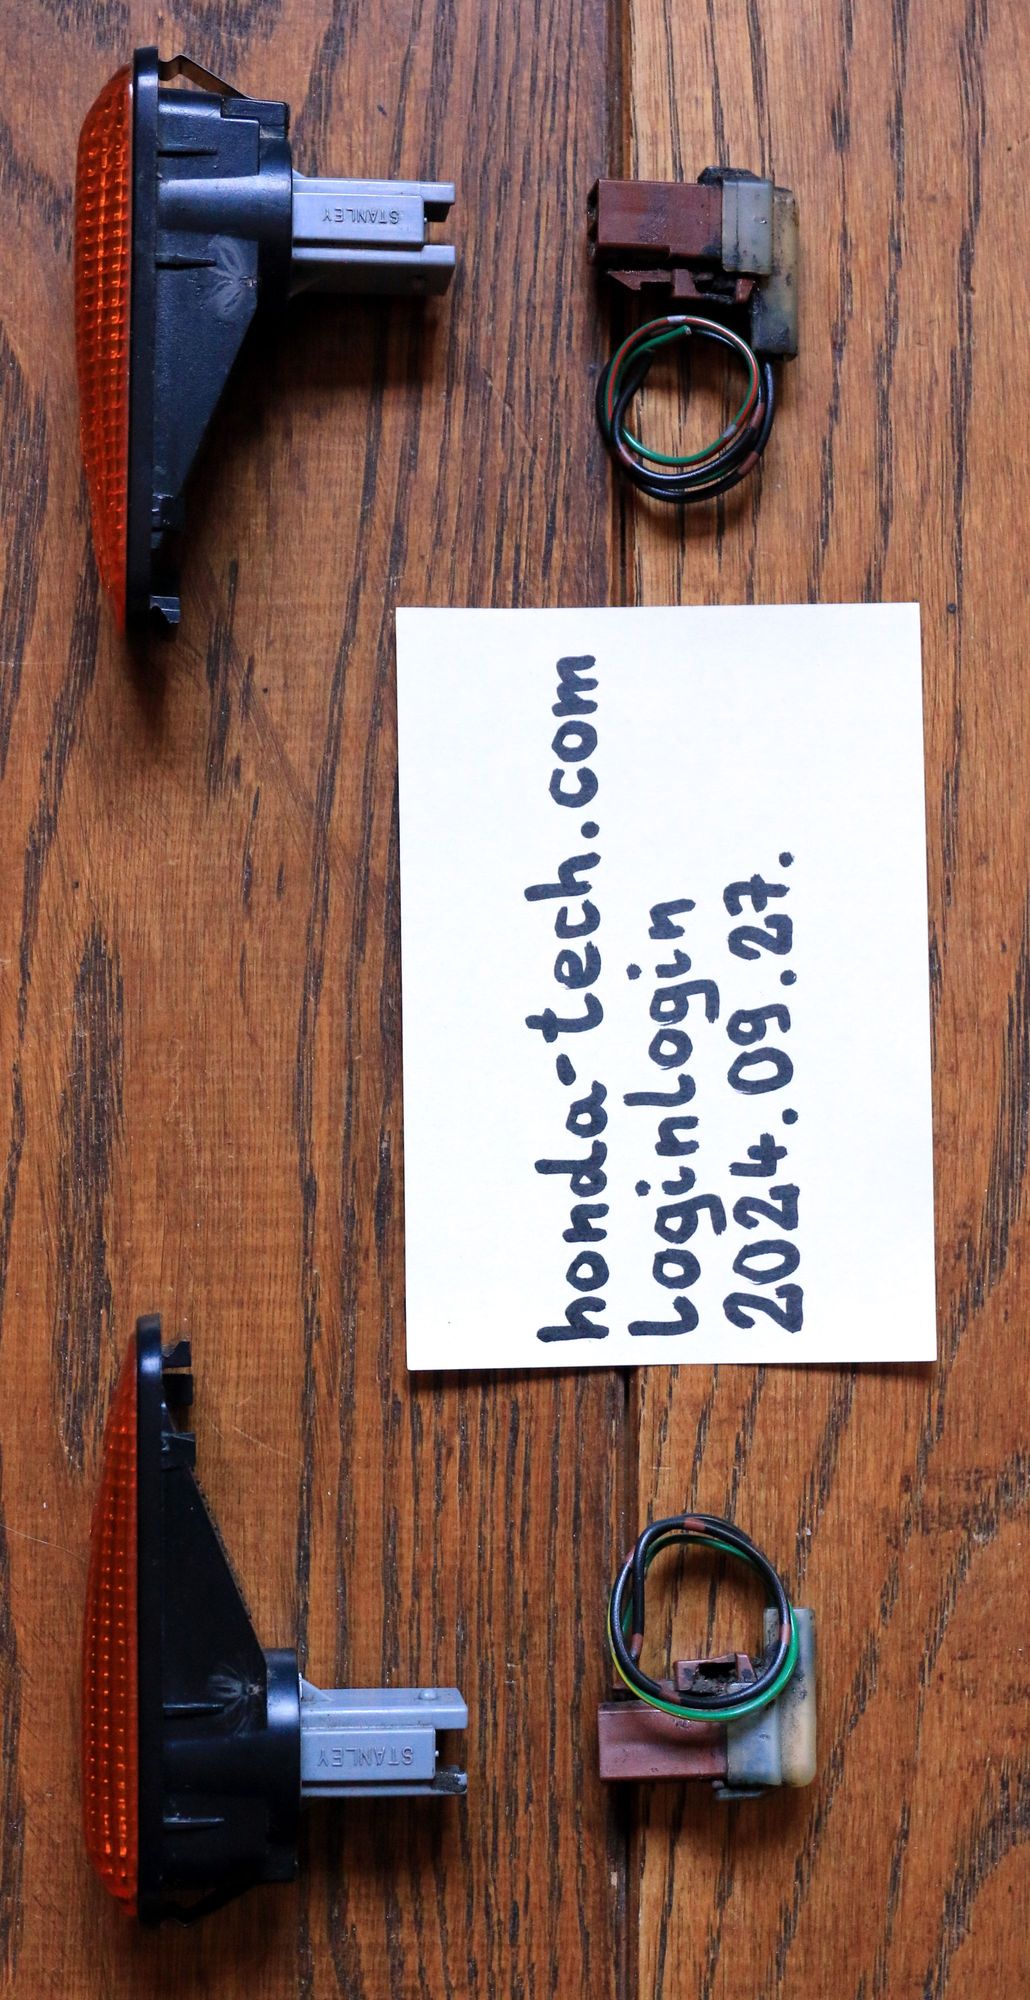 STANLEY
honda-tech.com
LoginLogin
2024.09.27.
STANLEY